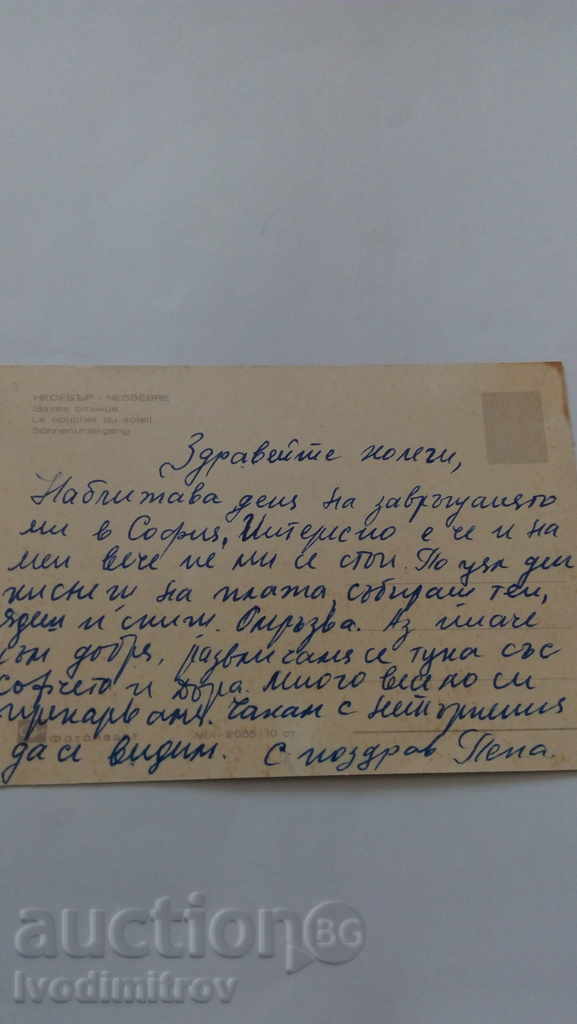 НЕСЕБЪР - NESSÈBRE
Залез слънце
Le coucher du soleil
Sonnenuntergang
Здравейте колеги,
Наближава деня на завръщането
ми в София. Интересно е че и на
мен вече не ми се стои. По цял ден
киснеш на плажа, събираш тен,
ядеш и спиш. Омръзва. Аз иначе
съм добре, развличаме се тука със
Софчето и Дора. Много весело си
прекарваме. Чакам с нетърпение
да се видим. С поздрав Пепа.
Фотоиздат
10 ст
auctionBG
Ivodimitrov